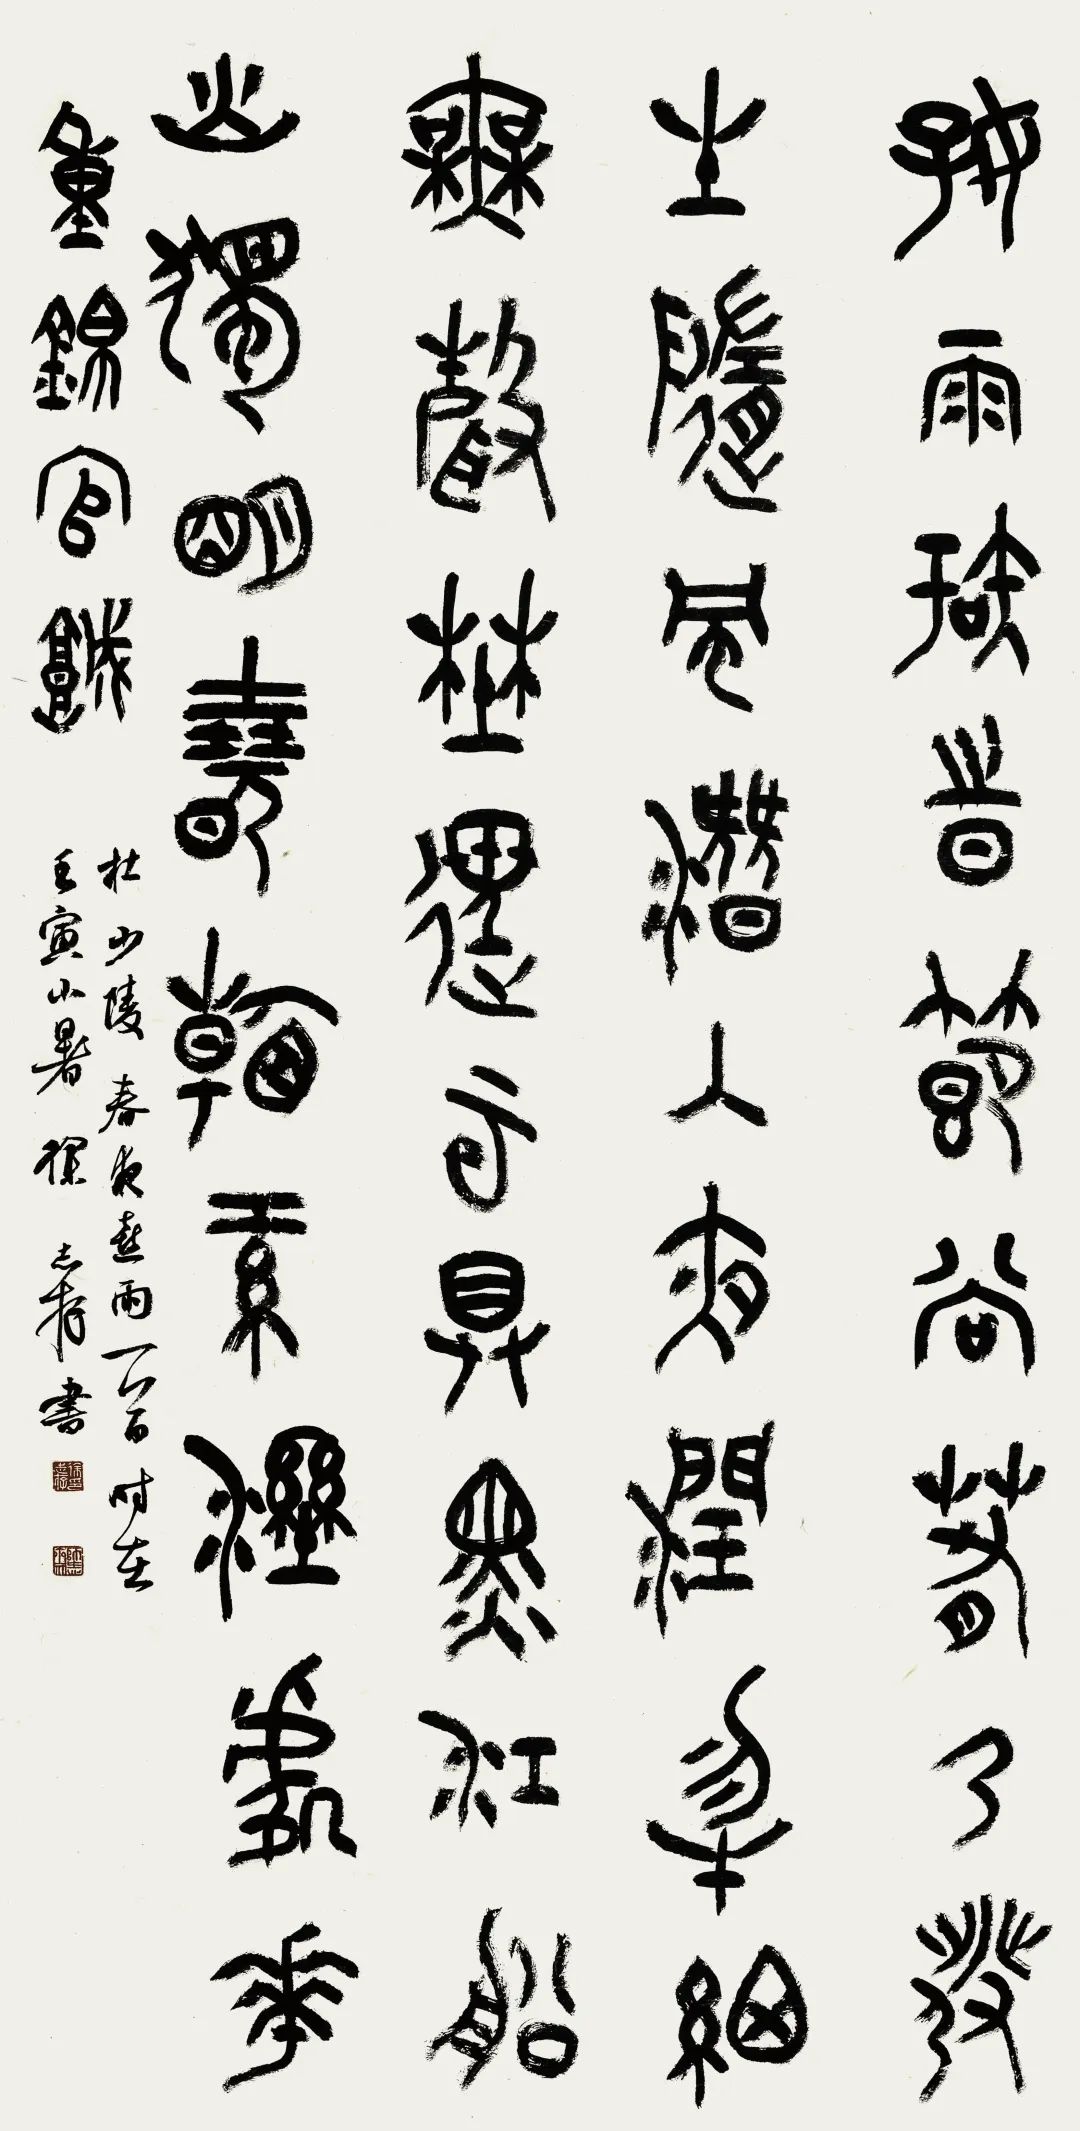 好雨知時節當春乃發
生隨風潛入夜潤物細
無聲埜徑云具黑江船
火獨明曉看紅濕處華
重錦官城
杜少陵春夜喜雨一首时在
壬寅小暑 志書